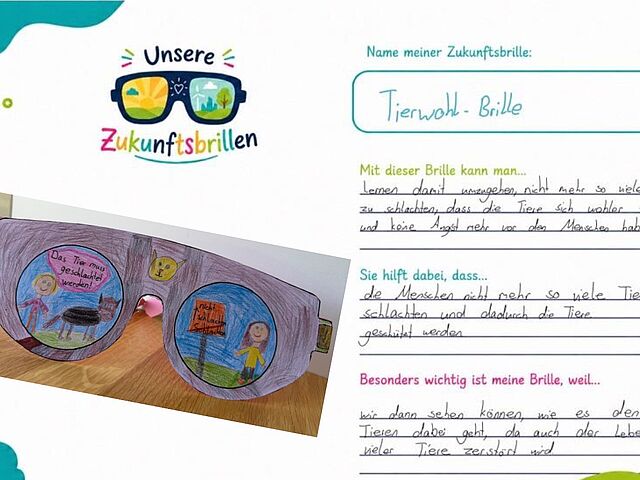 Unsere
Zukunftsbrillen
Name meiner Zukunftsbrille:
Tierwohl-Brille
Mit dieser Brille kann man...
Lernen damit umzugehen, nicht mehr so viele
zu schlachten, dass die Tiere sich wohler
und keine Angst mehr vor den Menschen hab
Sie hilft dabei, dass...
die Menschen nicht mehr so viele Tie
schlachten und dadurch die Tiere
geschützt werden
Besonders wichtig ist meine Brille, weil...
wir dann sehen können, wie es den
Tieren dabei geht, da auch der Lebe
vieler Tiere zerstört wird
Das Tier muss
geschlachtet
werden!
nicht
schlachten